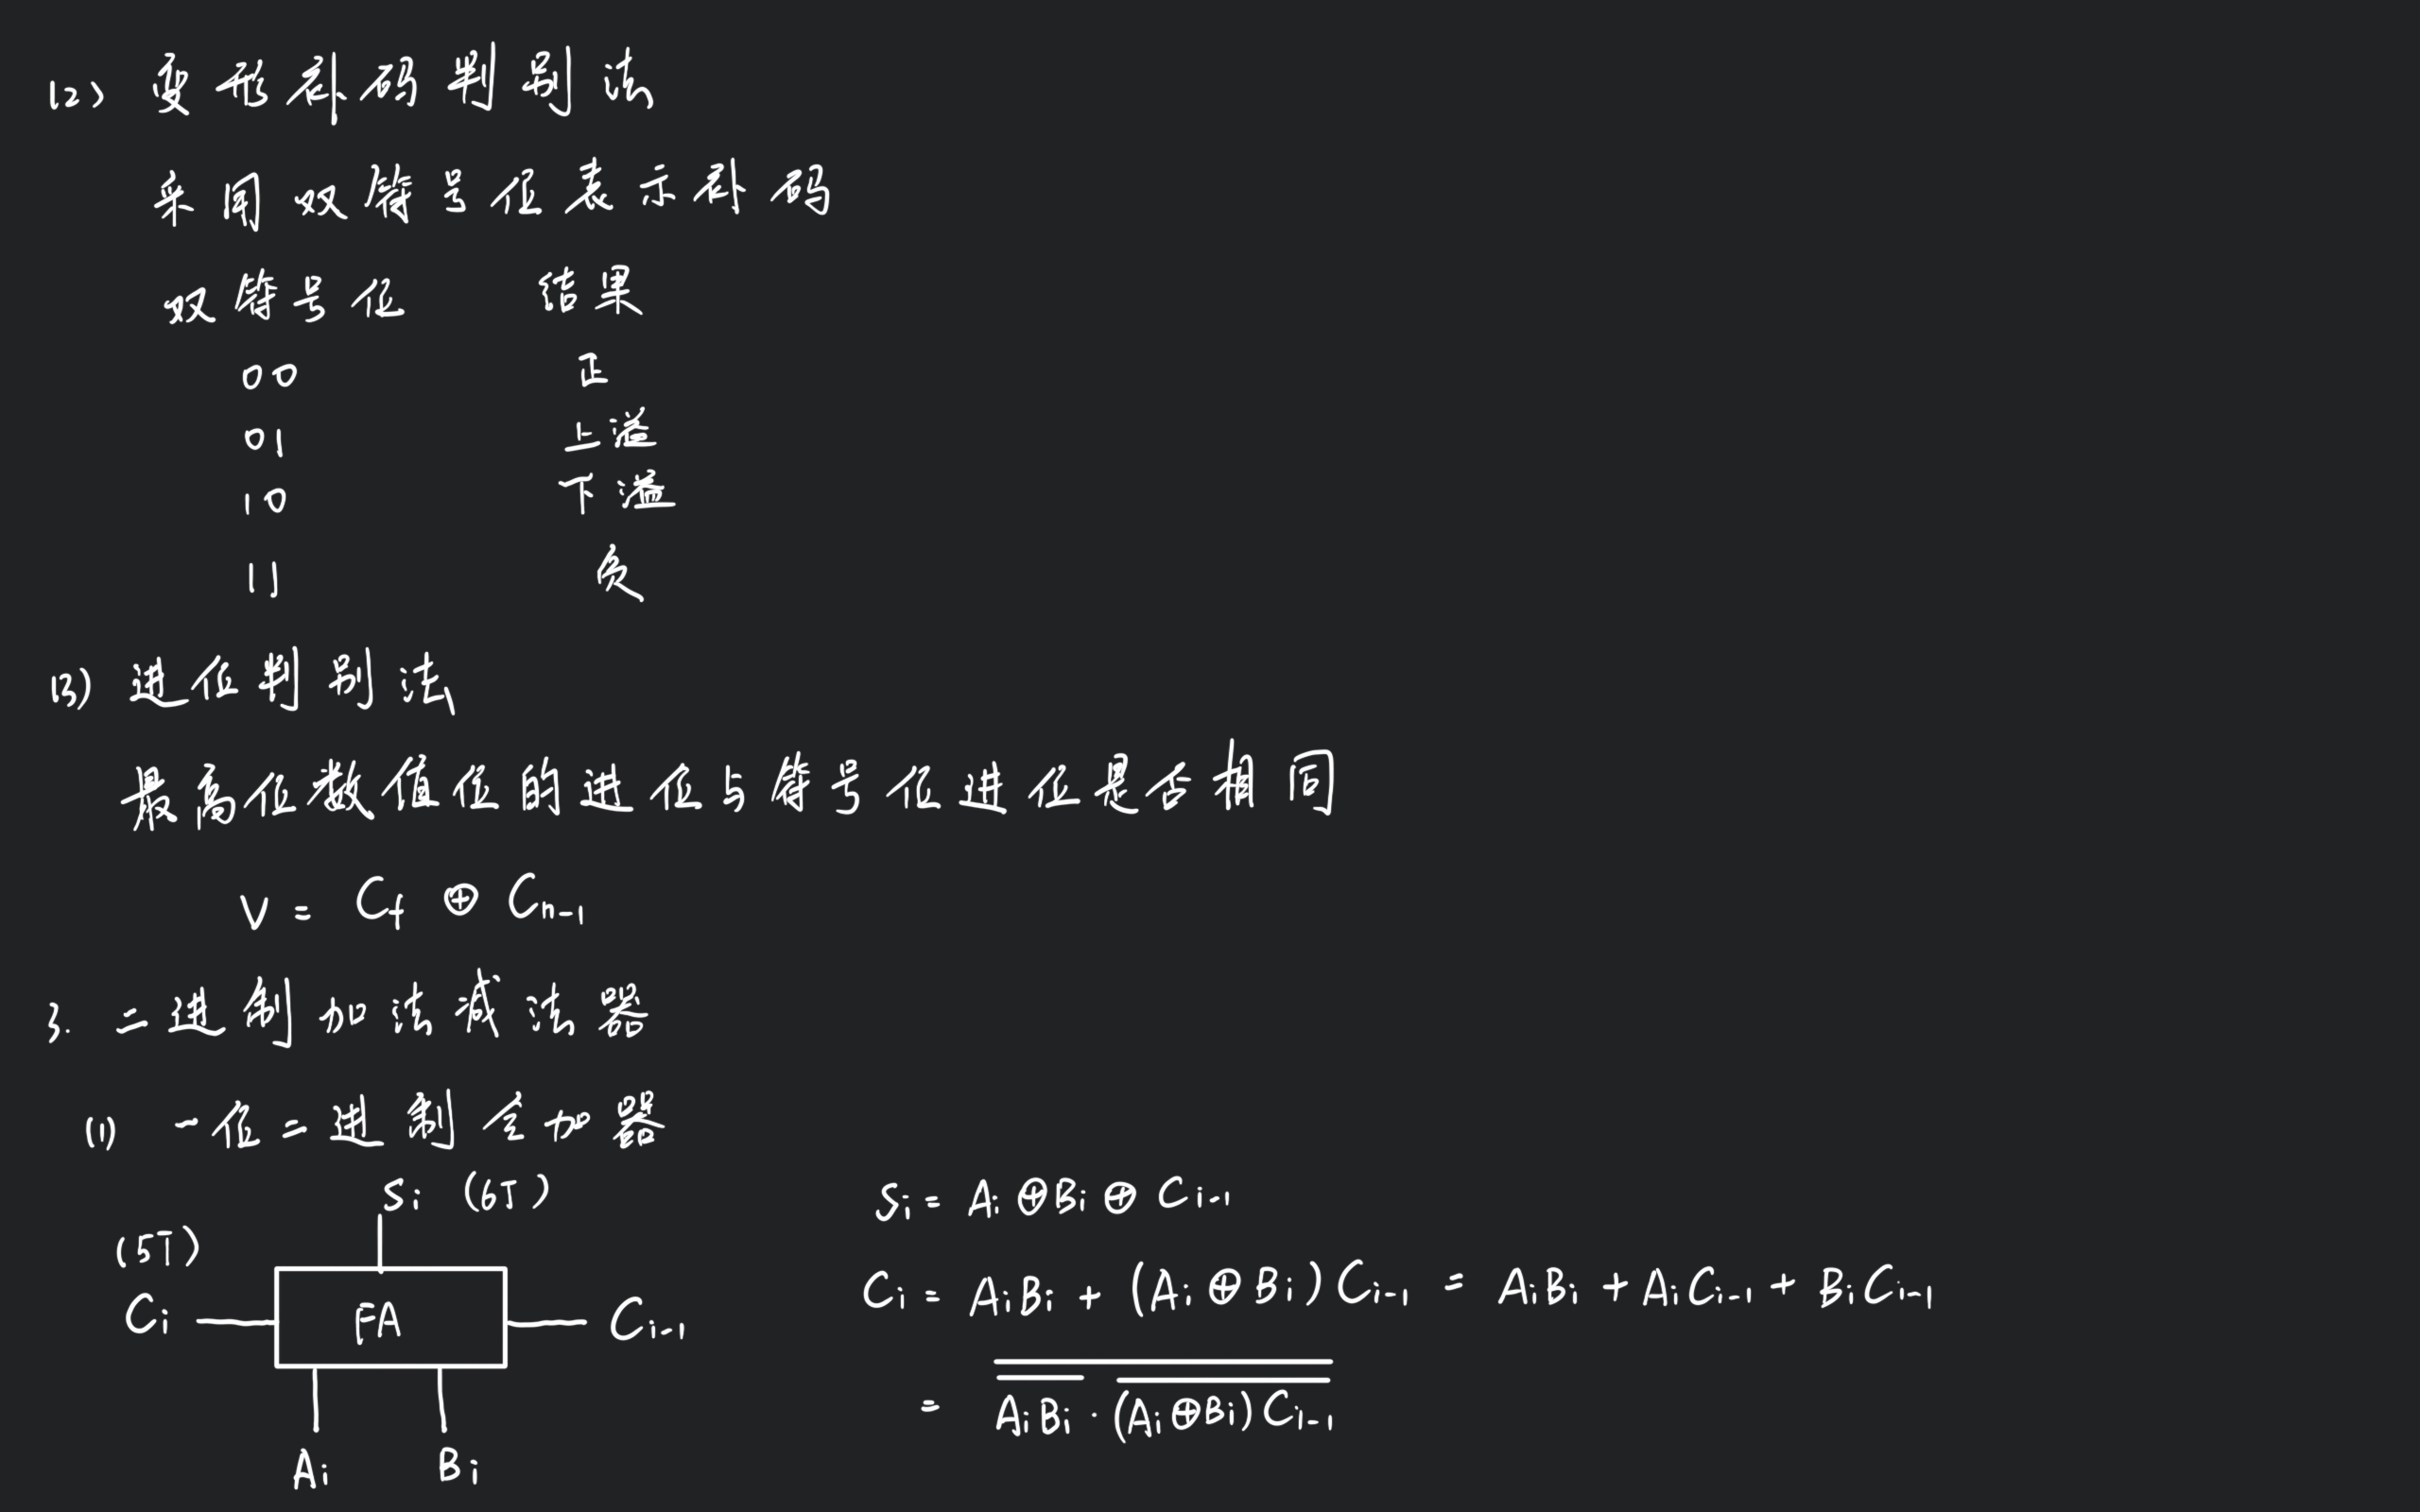 (2) 变形补码判别法
采用双符号位表示补码
双符号位 结果
00 正
01 上溢
10 下溢
11 负
(3) 进位判别法
最高位数值位的进位与符号位进位是否相同
V = Cf ⊕ Cn-1
3. 二进制加法减法器
(1) 一位二进制全加器
Si (6T)
(5T)
Ci FA Ci-1
Ai Bi
Si = Ai ⊕ Bi ⊕ Ci-1
Ci = AiBi + (Ai ⊕ Bi) Ci-1 = AiBi + AiCi-1 + BiCi-1
= \overline{\overline{AiBi} · \overline{(Ai⊕Bi) Ci-1}}